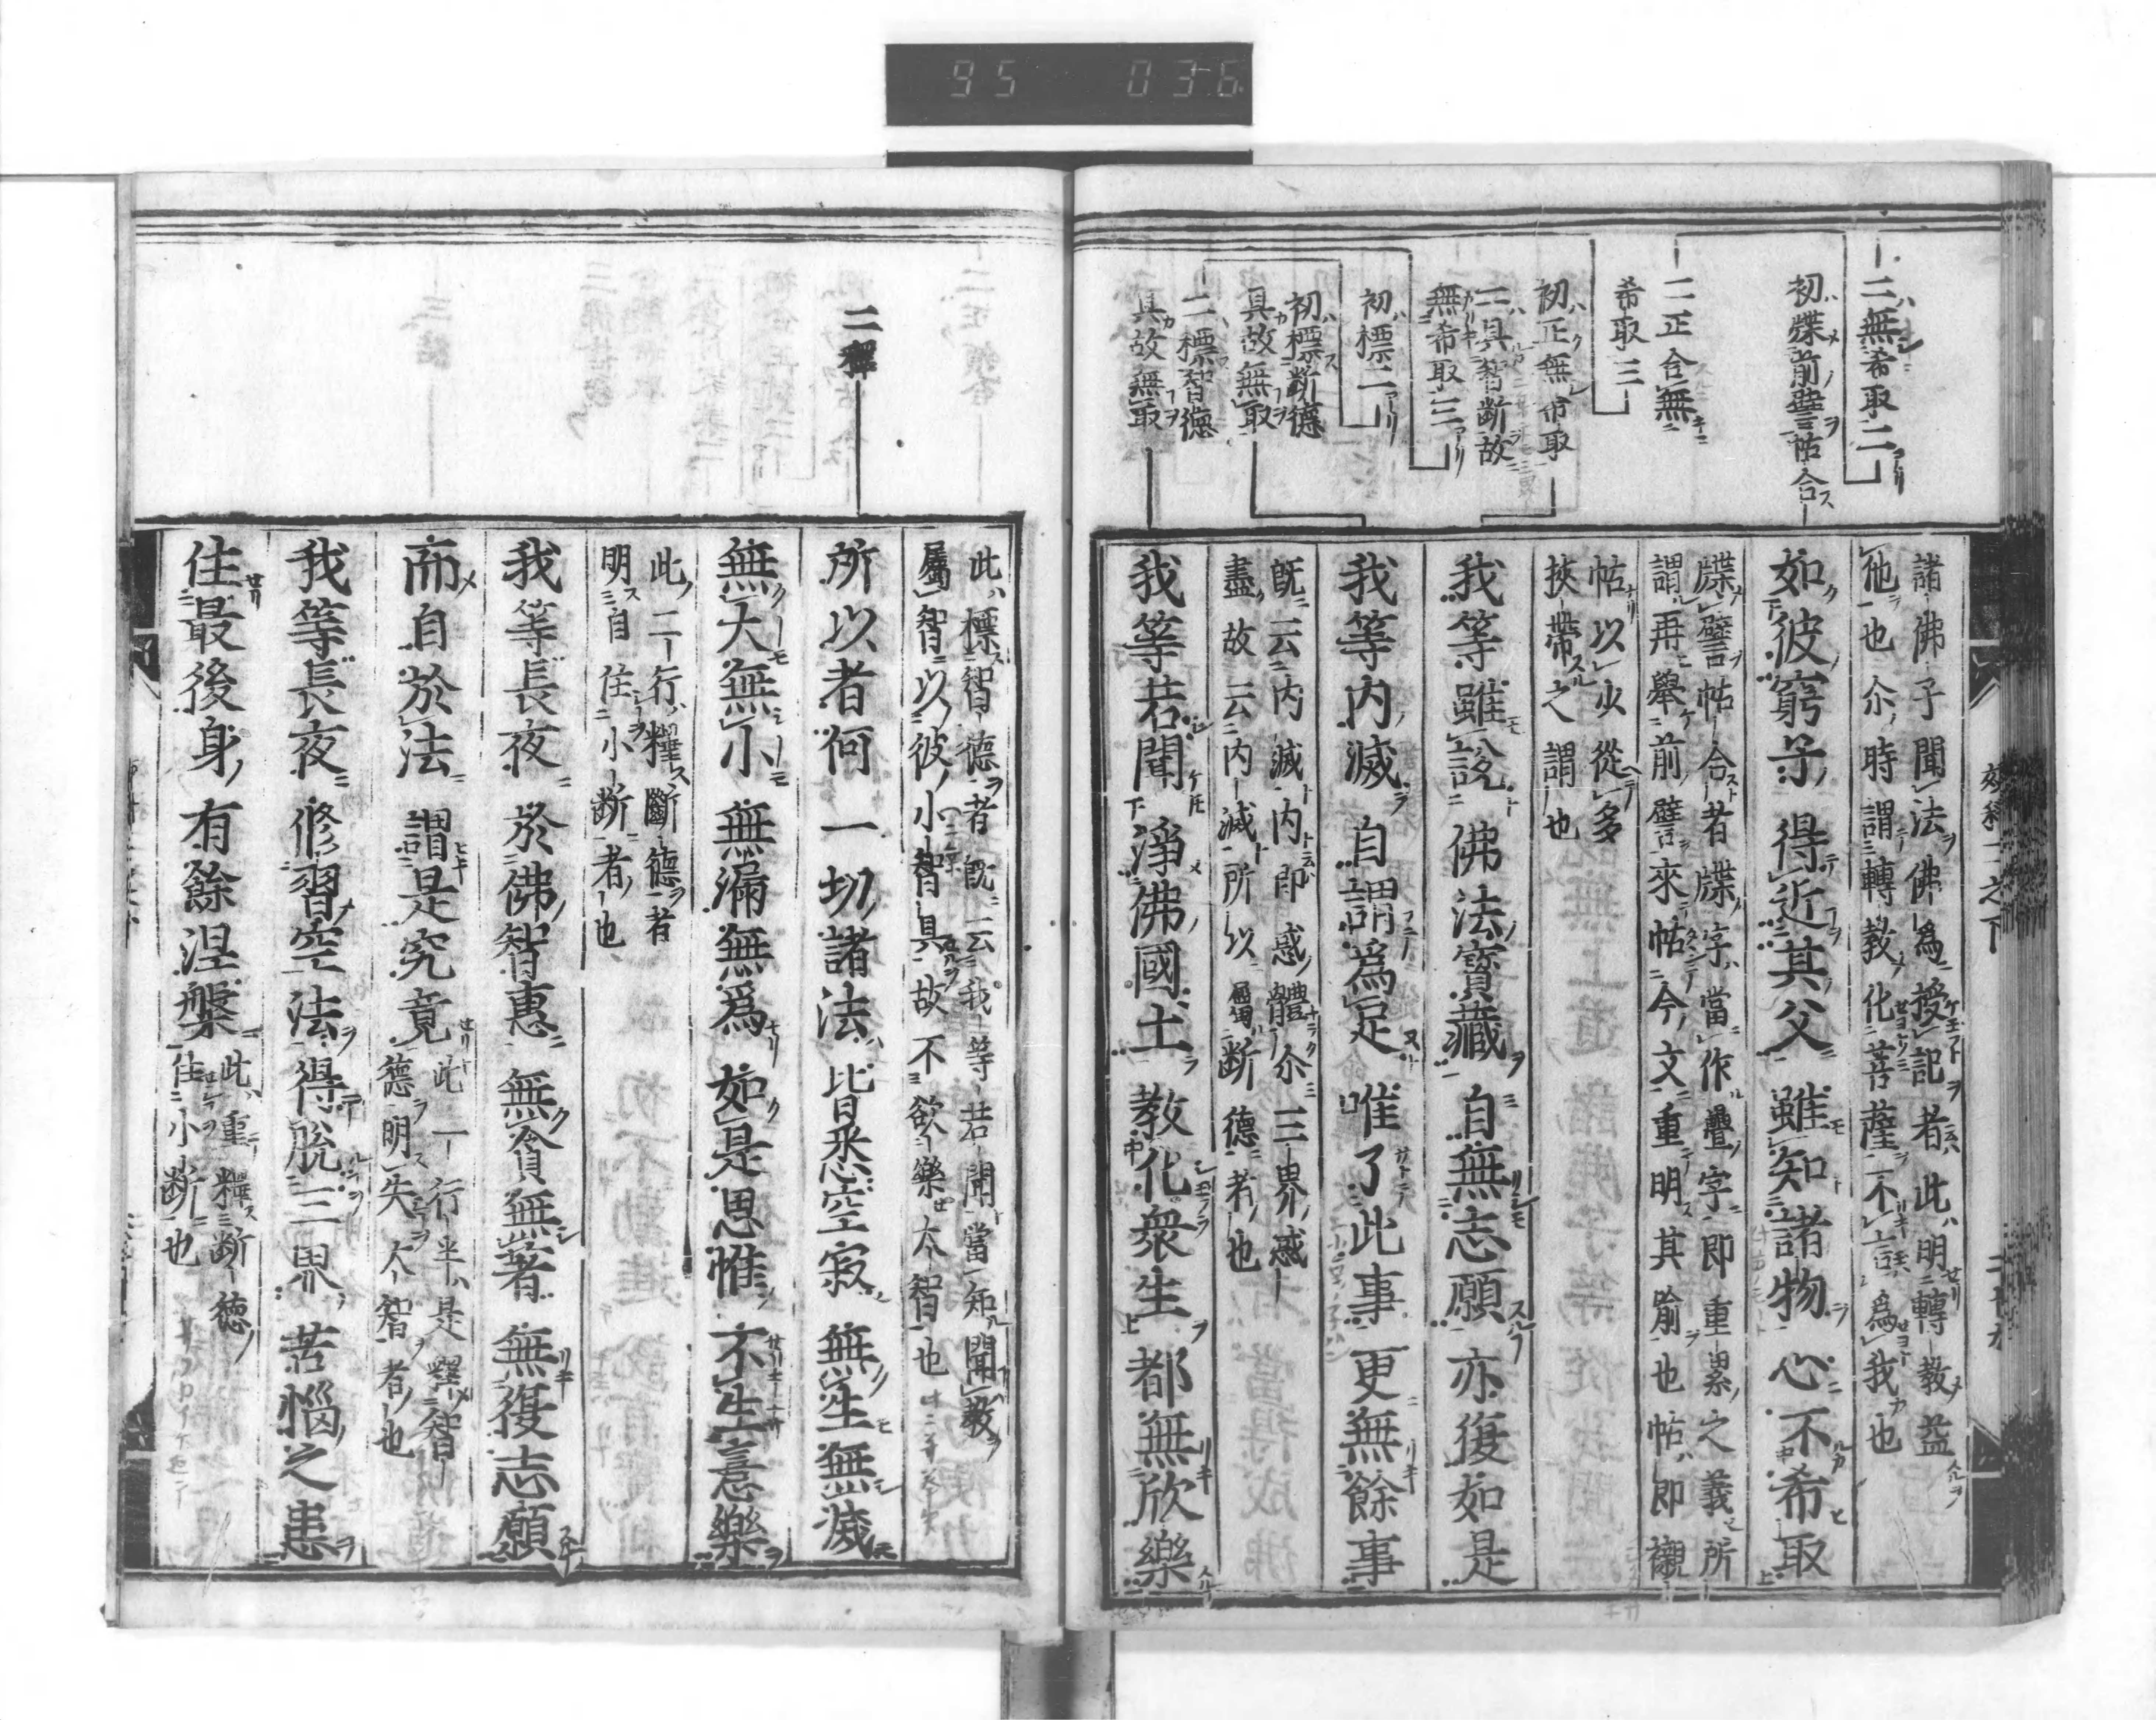 95 036
二無希取二
初牒前譬帖合
二正合無
希取三
初正無希取
二具智斷故
無希取三
初標二
初標斷德
具故無取
二標智德
具故無取
諸佛子聞法佛爲授記者此明轉教益
他也尒時謂轉教化菩薩不言爲我也
如彼窮子得近其父雖知諸物心不希取
牒譬帖合者牒字當作疊字即重累之義所
謂再舉前譬來帖今文重明其喻也帖即襯
帖以少從多
挾帶之謂也
我等雖說佛法寶藏自無志願亦復如是
我等內滅自謂爲足唯了此事更無餘事
既云內滅內即惑體尒三界惑
盡故云內滅所以屬斷德者也
我等若聞淨佛國土教化衆生都無欣樂
二釋
此標智德者既云我等若聞當知聞教
屬智以彼小智具故不欲樂大智也
所以者何一切諸法皆悉空寂無生無滅
無大無小無漏無爲如是思惟不生憙樂
此二行釋斷德者
明自住小斷者也
我等長夜於佛智惠無貪無著無復志願
而自於法謂是究竟此一行半是釋智
德明失大智者也
我等長夜修習空法得脫三界苦惱之患
住最後身有餘涅槃此重釋斷德
住小斷也